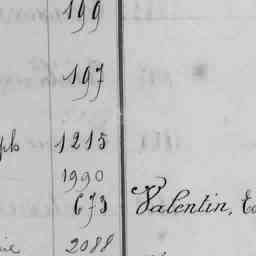 199
197
1215
1990
673 Valentin,
2088